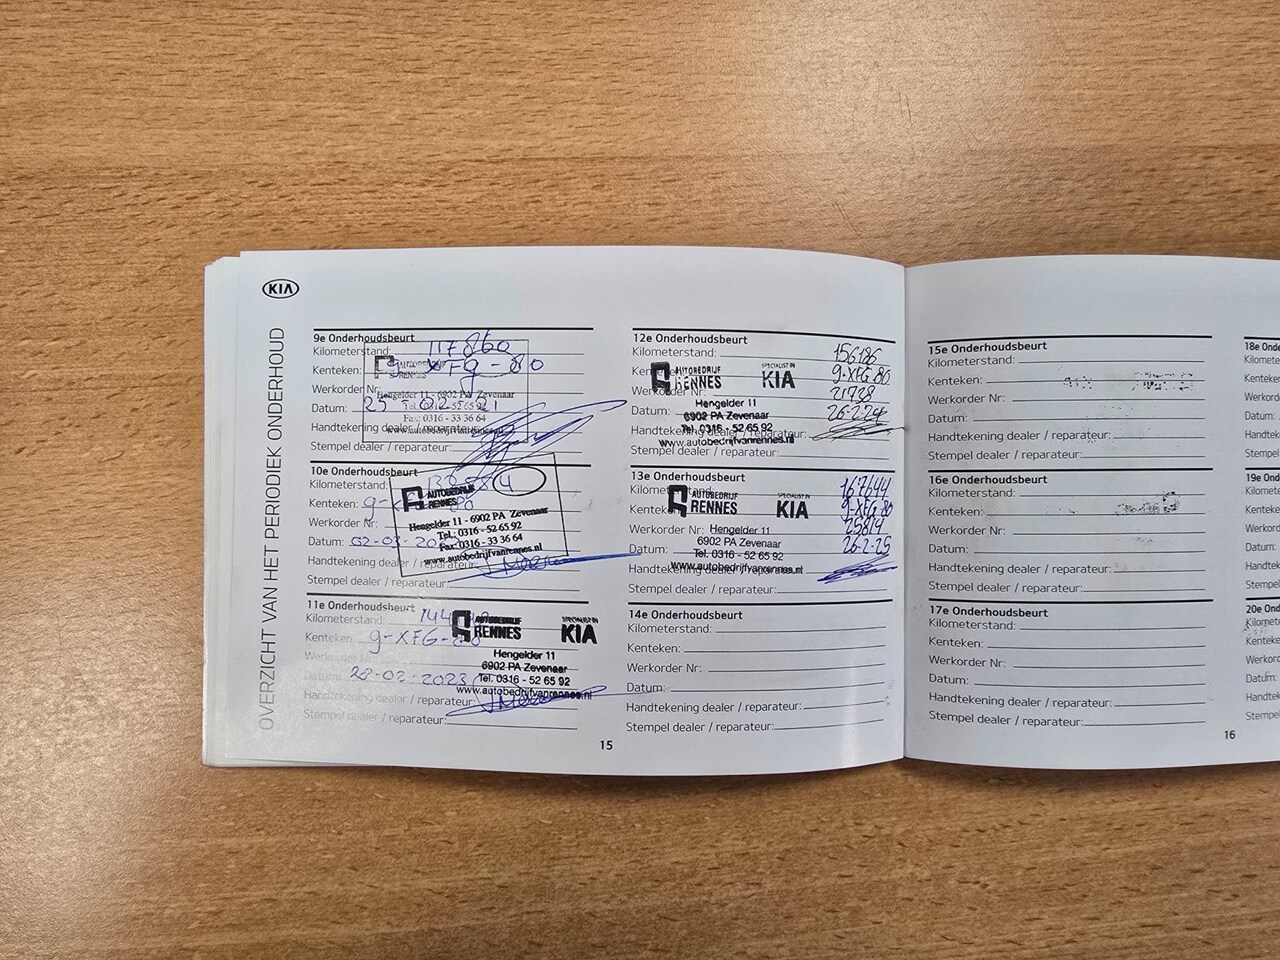 KIA
OVERZICHT VAN HET PERIODIEK ONDERHOUD
9e Onderhoudsbeurt
Kilometerstand: 117860
Kenteken: 9-XFG-80
Werkorder Nr:
Datum: 25-02-2021
Handtekening dealer / reparateur:
Stempel dealer / reparateur:
AUTOBEDRIJF
RENNES
Hengelder 11 - 6902 PA Zevenaar
Tel. 0316 - 52 65 92
Fax: 0316 - 33 36 64
www.autobedrijfvanrennes.nl
10e Onderhoudsbeurt
Kilometerstand:
Kenteken: 80
Werkorder Nr:
Datum: 02-03-
Handtekening dealer / reparateur:
Stempel dealer / reparateur:
AUTOBEDRIJF
RENNES
Hengelder 11 - 6902 PA Zevenaar
Tel.: 0316 - 52 65 92
Fax: 0316 - 33 36 64
www.autobedrijfvanrennes.nl
11e Onderhoudsbeurt
Kilometerstand:
Kenteken: 9-XFG-80
Werkorder Nr:
Datum: 28-02-2023
Handtekening dealer / reparateur:
Stempel dealer / reparateur:
AUTOBEDRIJF
RENNES
SPECIALIST IN
KIA
Hengelder 11
6902 PA Zevenaar
Tel. 0316 - 52 65 92
www.autobedrijfvanrennes.nl
12e Onderhoudsbeurt
Kilometerstand: 156186
Kenteken: 9-XFG 80
Werkorder Nr: 21738
Datum: 26-2-24
Handtekening dealer / reparateur:
Stempel dealer / reparateur:
AUTOBEDRIJF
RENNES
SPECIALIST IN
KIA
Hengelder 11
6902 PA Zevenaar
Tel. 0316 - 52 65 92
www.autobedrijfvanrennes.nl
13e Onderhoudsbeurt
Kilometerstand: 167644
Kenteken: 9-XFG 80
Werkorder Nr: 25814
Datum: 26-2-25
Handtekening dealer / reparateur:
Stempel dealer / reparateur:
AUTOBEDRIJF
RENNES
SPECIALIST IN
KIA
Hengelder 11
6902 PA Zevenaar
Tel. 0316 - 52 65 92
www.autobedrijfvanrennes.nl
14e Onderhoudsbeurt
Kilometerstand:
Kenteken:
Werkorder Nr:
Datum:
Handtekening dealer / reparateur:
Stempel dealer / reparateur:
15
15e Onderhoudsbeurt
Kilometerstand:
Kenteken:
Werkorder Nr:
Datum:
Handtekening dealer / reparateur:
Stempel dealer / reparateur:
16e Onderhoudsbeurt
Kilometerstand:
Kenteken:
Werkorder Nr:
Datum:
Handtekening dealer / reparateur:
Stempel dealer / reparateur:
17e Onderhoudsbeurt
Kilometerstand:
Kenteken:
Werkorder Nr:
Datum:
Handtekening dealer / reparateur:
Stempel dealer / reparateur:
16
18e
19e
20e